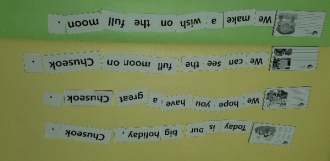 Today is our big holiday, Chuseok .
We hope you have a great Chuseok .
We can see the full moon on Chuseok .
We make a wish on the full moon .